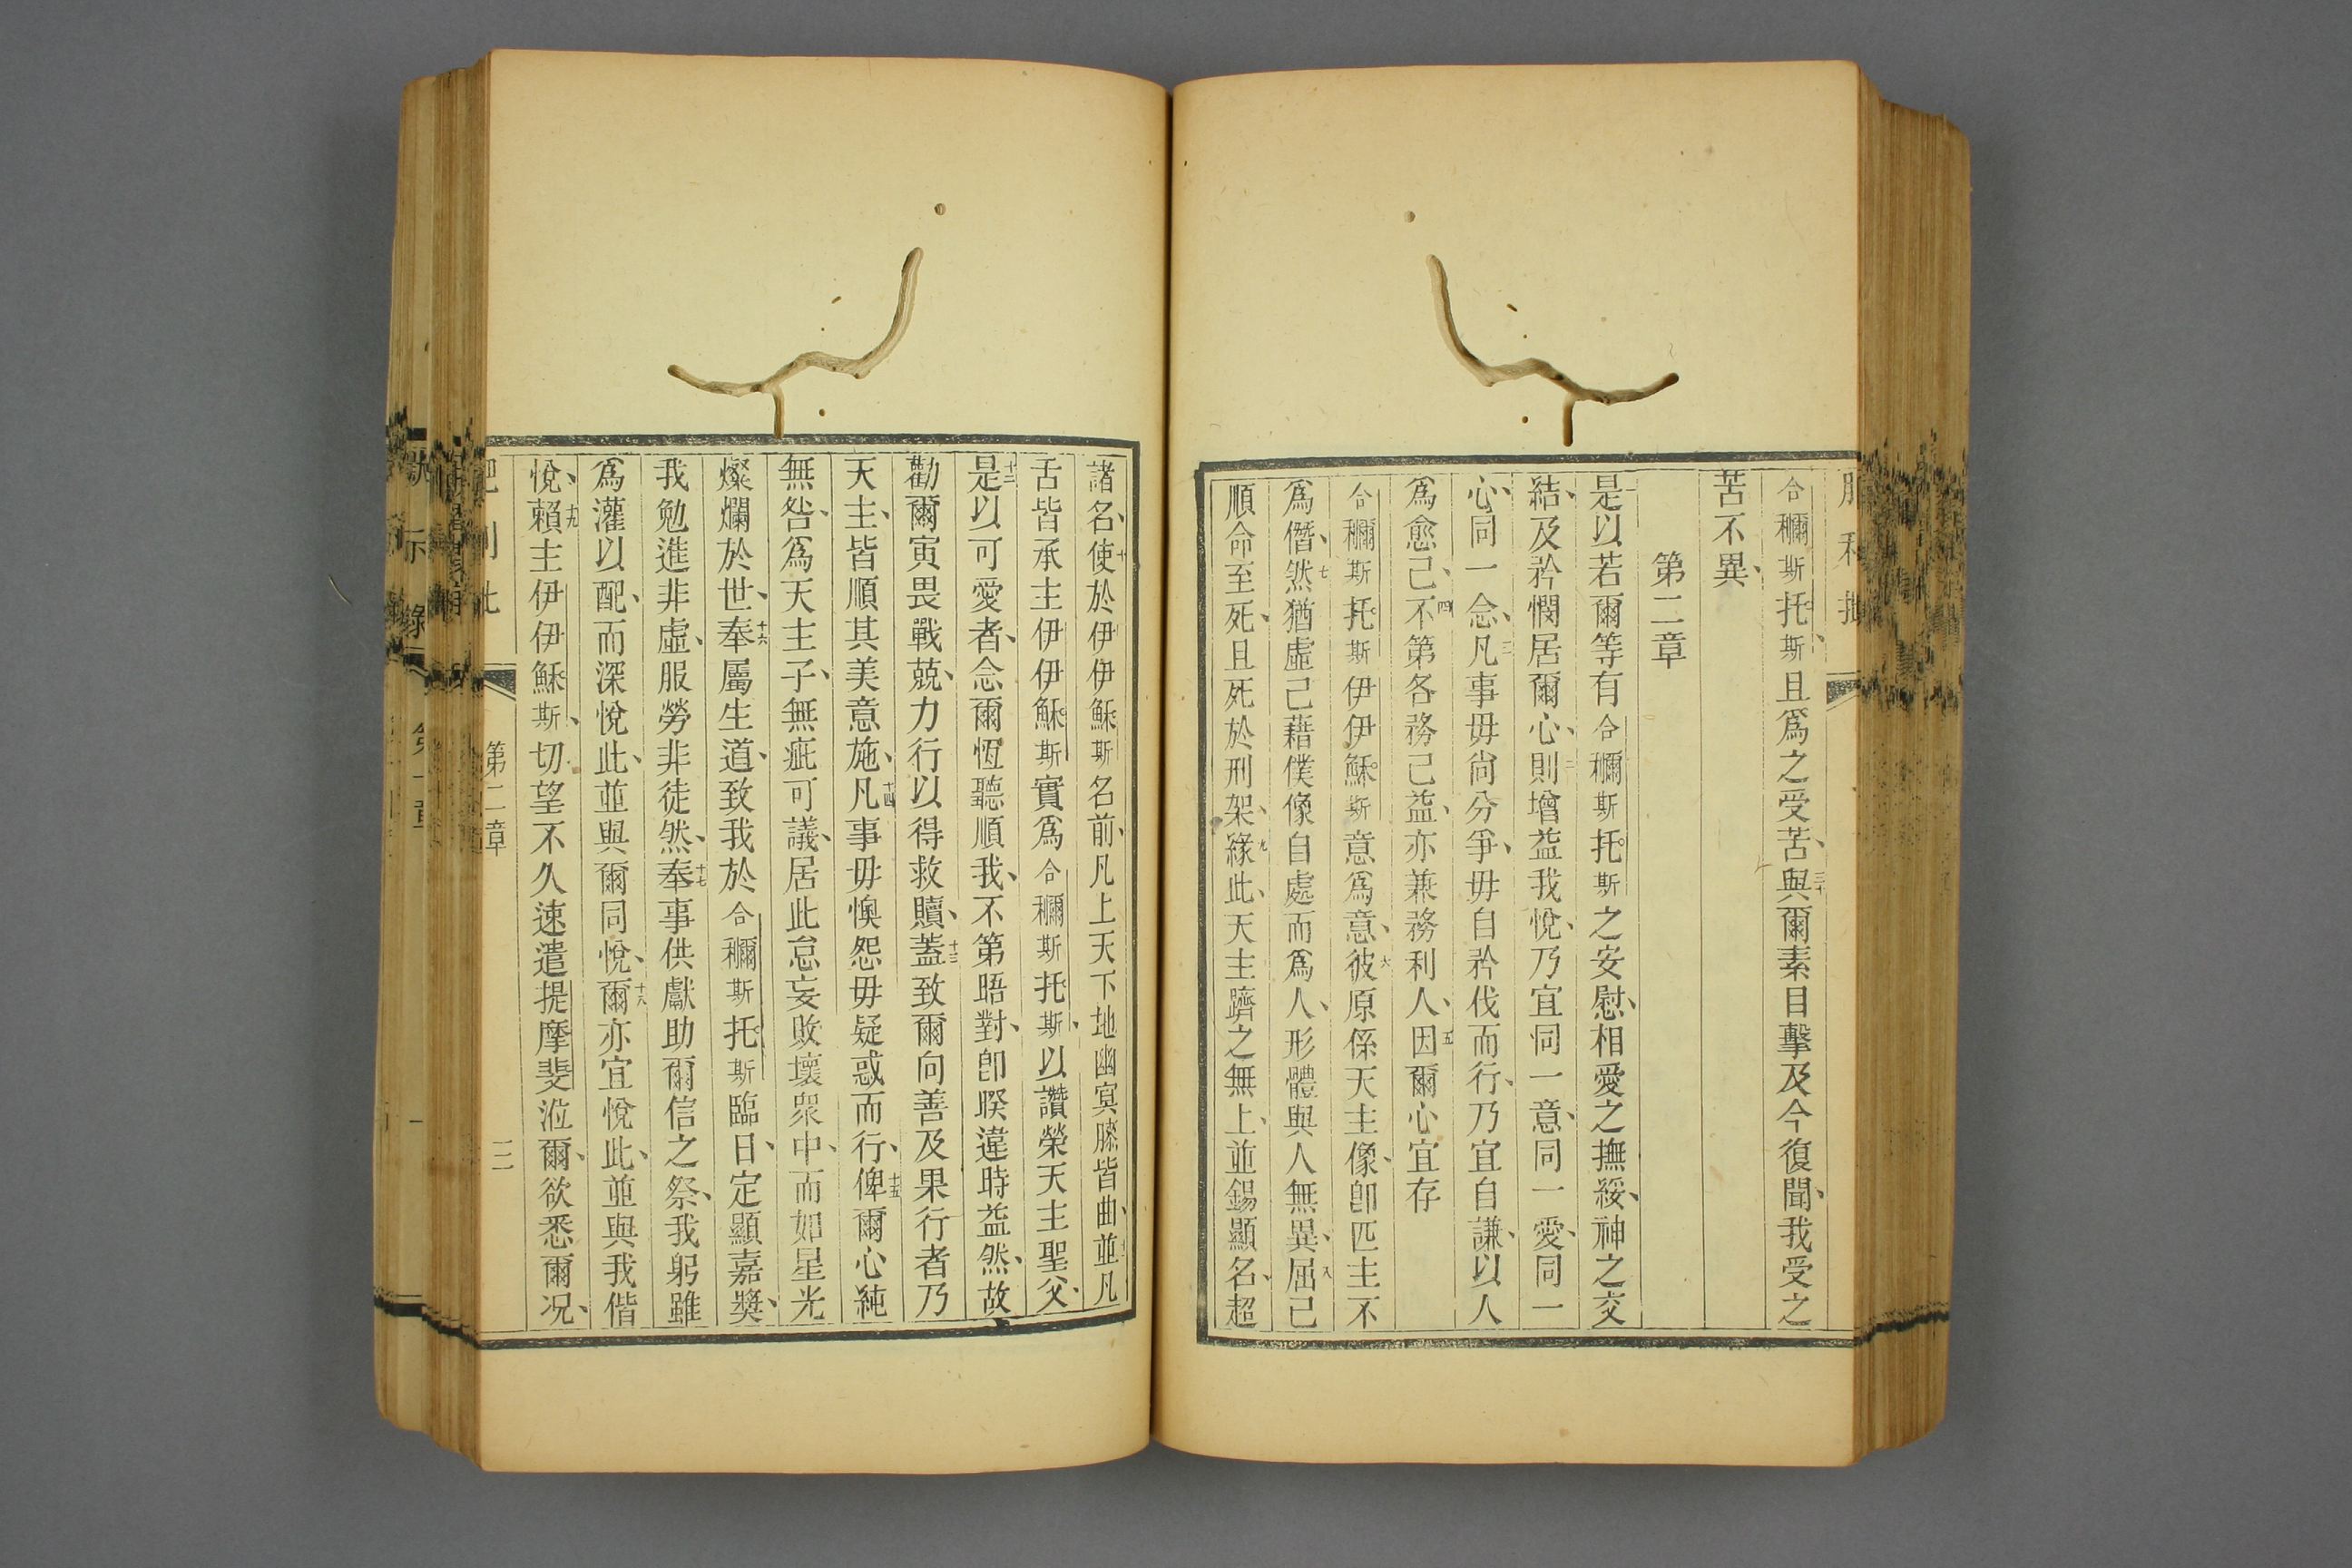 合穪斯托斯且爲之受苦、三十與爾素目擊及今復聞、我受之
苦不異、
第二章
一是以若爾等有合穪斯托斯之安慰、相愛之撫綏、神之交
結、及矜憫居爾心、二則增益我悅、乃宜同一意、同一愛、同一
心、同一念、三凡事毋尙分爭、毋自矜伐而行、乃宜自謙、以人
爲愈己、四不第各務己益、亦兼務利人、五因爾心宜存
合穪斯托斯伊伊穌斯意爲意、六彼原係天主像、卽匹主不
爲僭、七然猶虛己藉僕像自處而爲人、形體與人無異、八屈己
順命至死、且死於刑架、九緣此、天主躋之無上、並錫顯名、超
諸名、十使於伊伊穌斯名前、凡上天下地幽冥膝皆曲、十一並凡
舌皆承主伊伊穌斯實爲合穪斯托斯、以讚榮天主聖父、
十二是以可愛者、念爾恆聽順我、不第晤對、卽睽違時益然、故
勸爾寅畏戰兢、力行以得救贖、十三蓋致爾向善及果行者乃
天主、皆順其美意施、十四凡事毋懊怨毋疑惑而行、十五俾爾心純
無咎、爲天主子、無疵可議、居此怠妄敗壞眾中、而如星光
燦爛於世、十六奉屬生道、致我於合穪斯托斯臨日、定顯嘉獎、
我勉進非虛、服勞非徒然、十七奉事供獻助爾信之祭、我躬雖
爲灌以配、而深悅此、並與爾同悅、十八爾亦宜悅此、並與我偕
悅、十九賴主伊伊穌斯、切望不久速遣提摩斐涖爾、欲悉爾况、
第二章
二